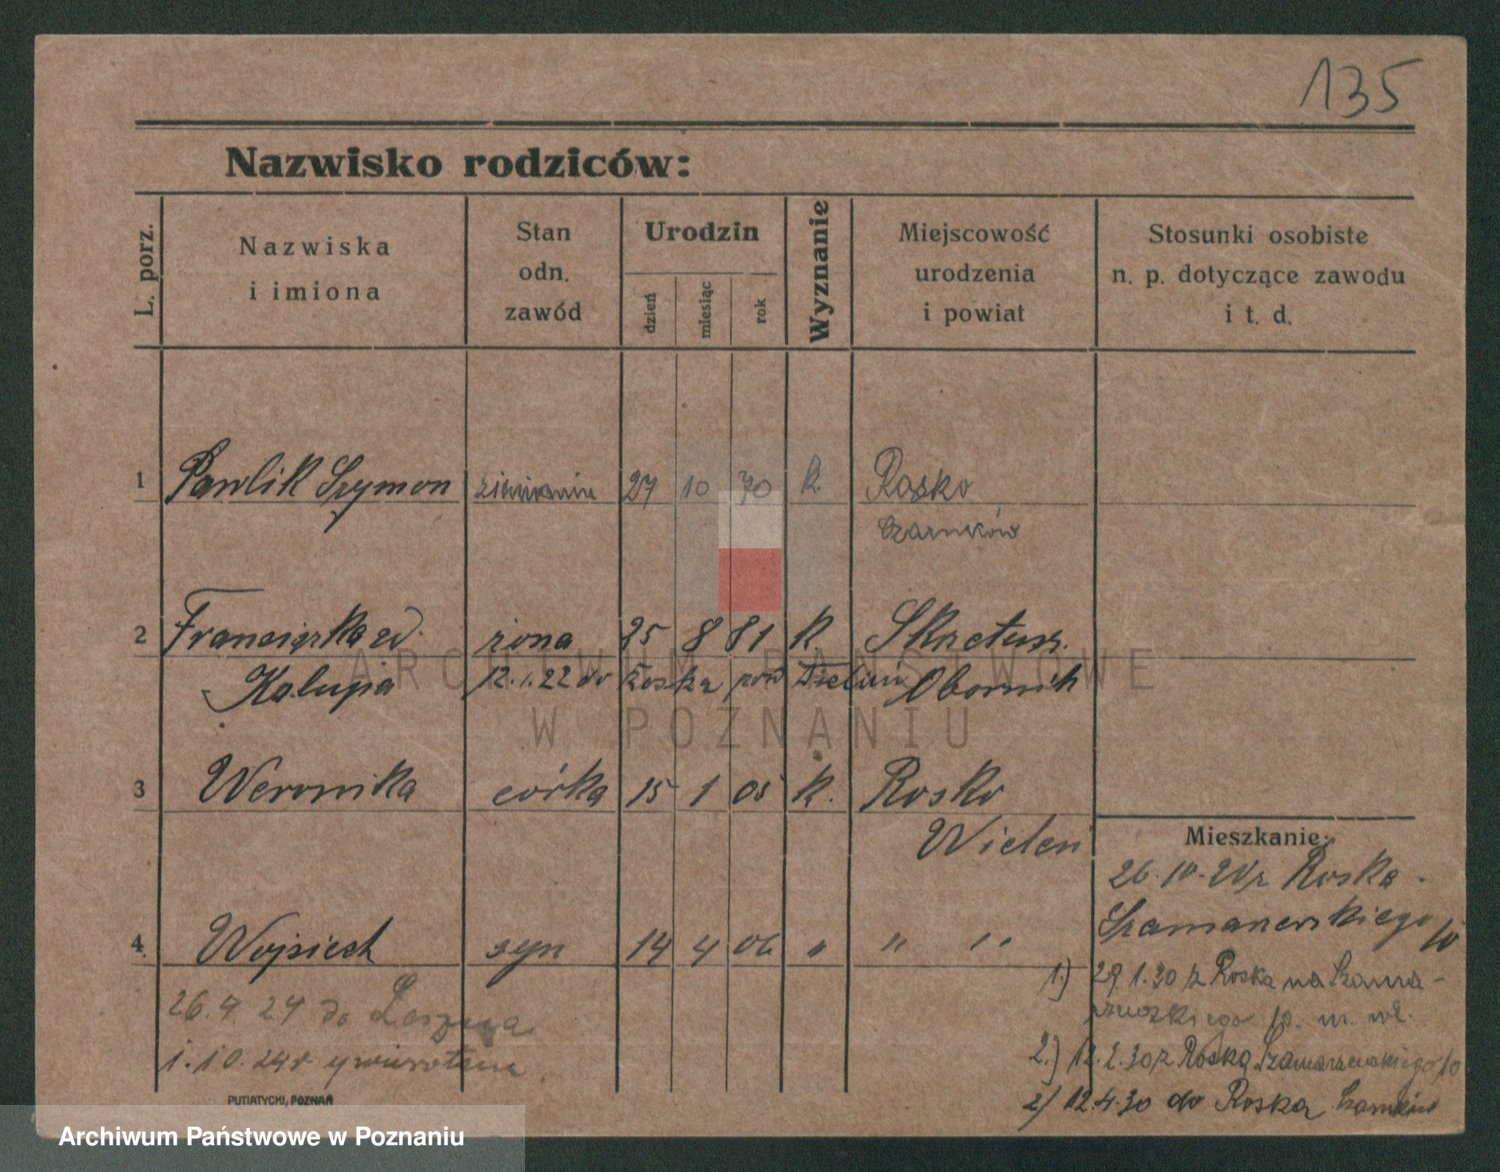 135
Nazwisko rodziców:
L. porz.
Nazwiska
i imiona
Stan
odn.
zawód
Urodzin
dzień
miesiąc
rok
Wyznanie
Miejscowość
urodzenia
i powiat
Stosunki osobiste
n. p. dotyczące zawodu
i t. d.
1 Pawlik Szymon 27 10 70 k. Rosko
Czarnków
2 Franciszka żona 25 8 81 k. Skretusz
Kalupa 12.1.22 do Roska pow Wieleń Obornik
3 Weronika córka 15 1 05 k. Rosko
Wieleń
4 Wojciech syn 14 4 06 " " "
26.4.24 do
1.10.24
Mieszkanie:
26. Roska
10
1.) 1.30 z Roska na
2.) 12.2.30 z Roska Szamarzewskiego 10
2/ 12.4.30 do Roska
PUTIATYCKI, POZNAŃ
ARCHIWUM PAŃSTWOWE
W POZNANIU
Archiwum Państwowe w Poznaniu